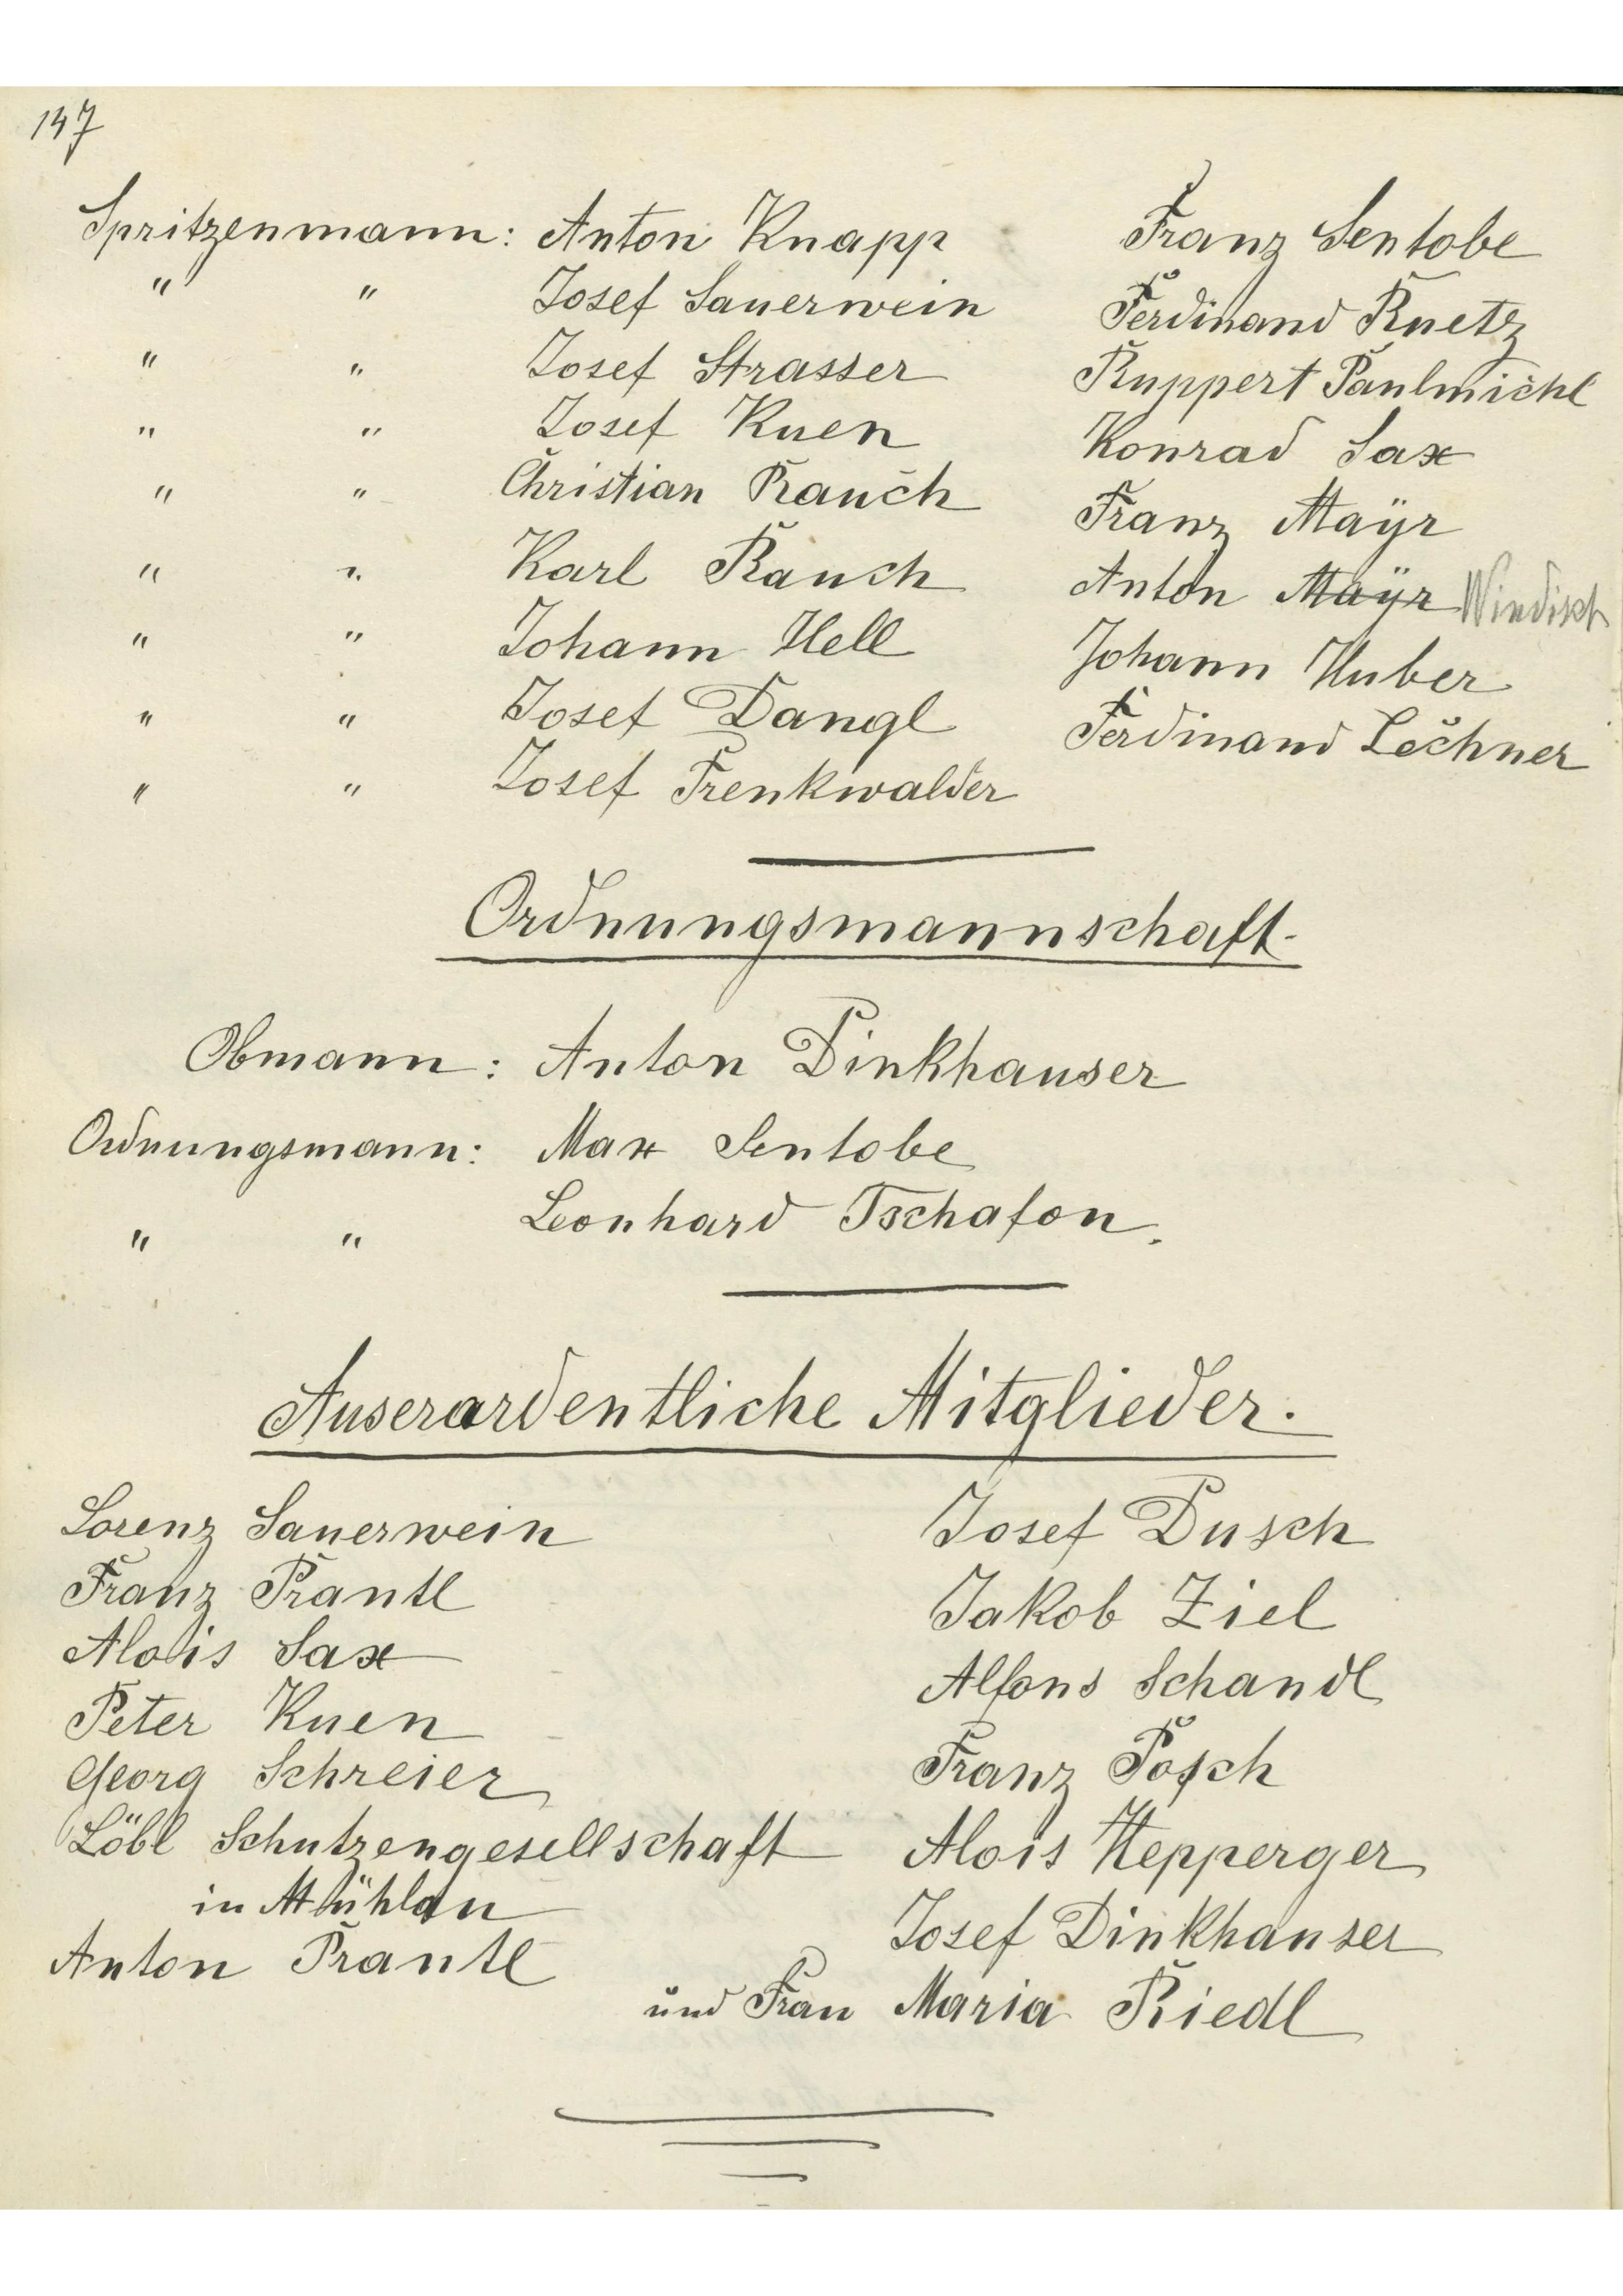 147
Spritzenmann: Anton Knapp Franz Sentobe
" " Josef Sauerwein Ferdinand Ruetz
" " Josef Strasser Ruppert Paulmichl
" " Josef Kuen Konrad Sax
" " Christian Rauch Franz Maÿr
" " Karl Rauch Anton Maÿr Windisch
" " Johann Hell Johann Huber
" " Josef Dangl Ferdinand Lechner
" " Josef Trenkwalder
Ordnungsmannschaft.
Obmann: Anton Dinkhauser
Ordnungsmann: Max Sentobe
" " Leonhard Tschafon.
Auserardentliche Mitglieder.
Lorenz Sauerwein Josef Dusch
Franz Prantl Jakob Ziel
Alois Sax Alfons Schandl
Peter Kuen Franz Posch
Georg Schreier
Löbl Schutzengesellschaft Alois Hepperger
in Mühlau Josef Dinkhauser
Anton Prantl
und Frau Maria Riedl